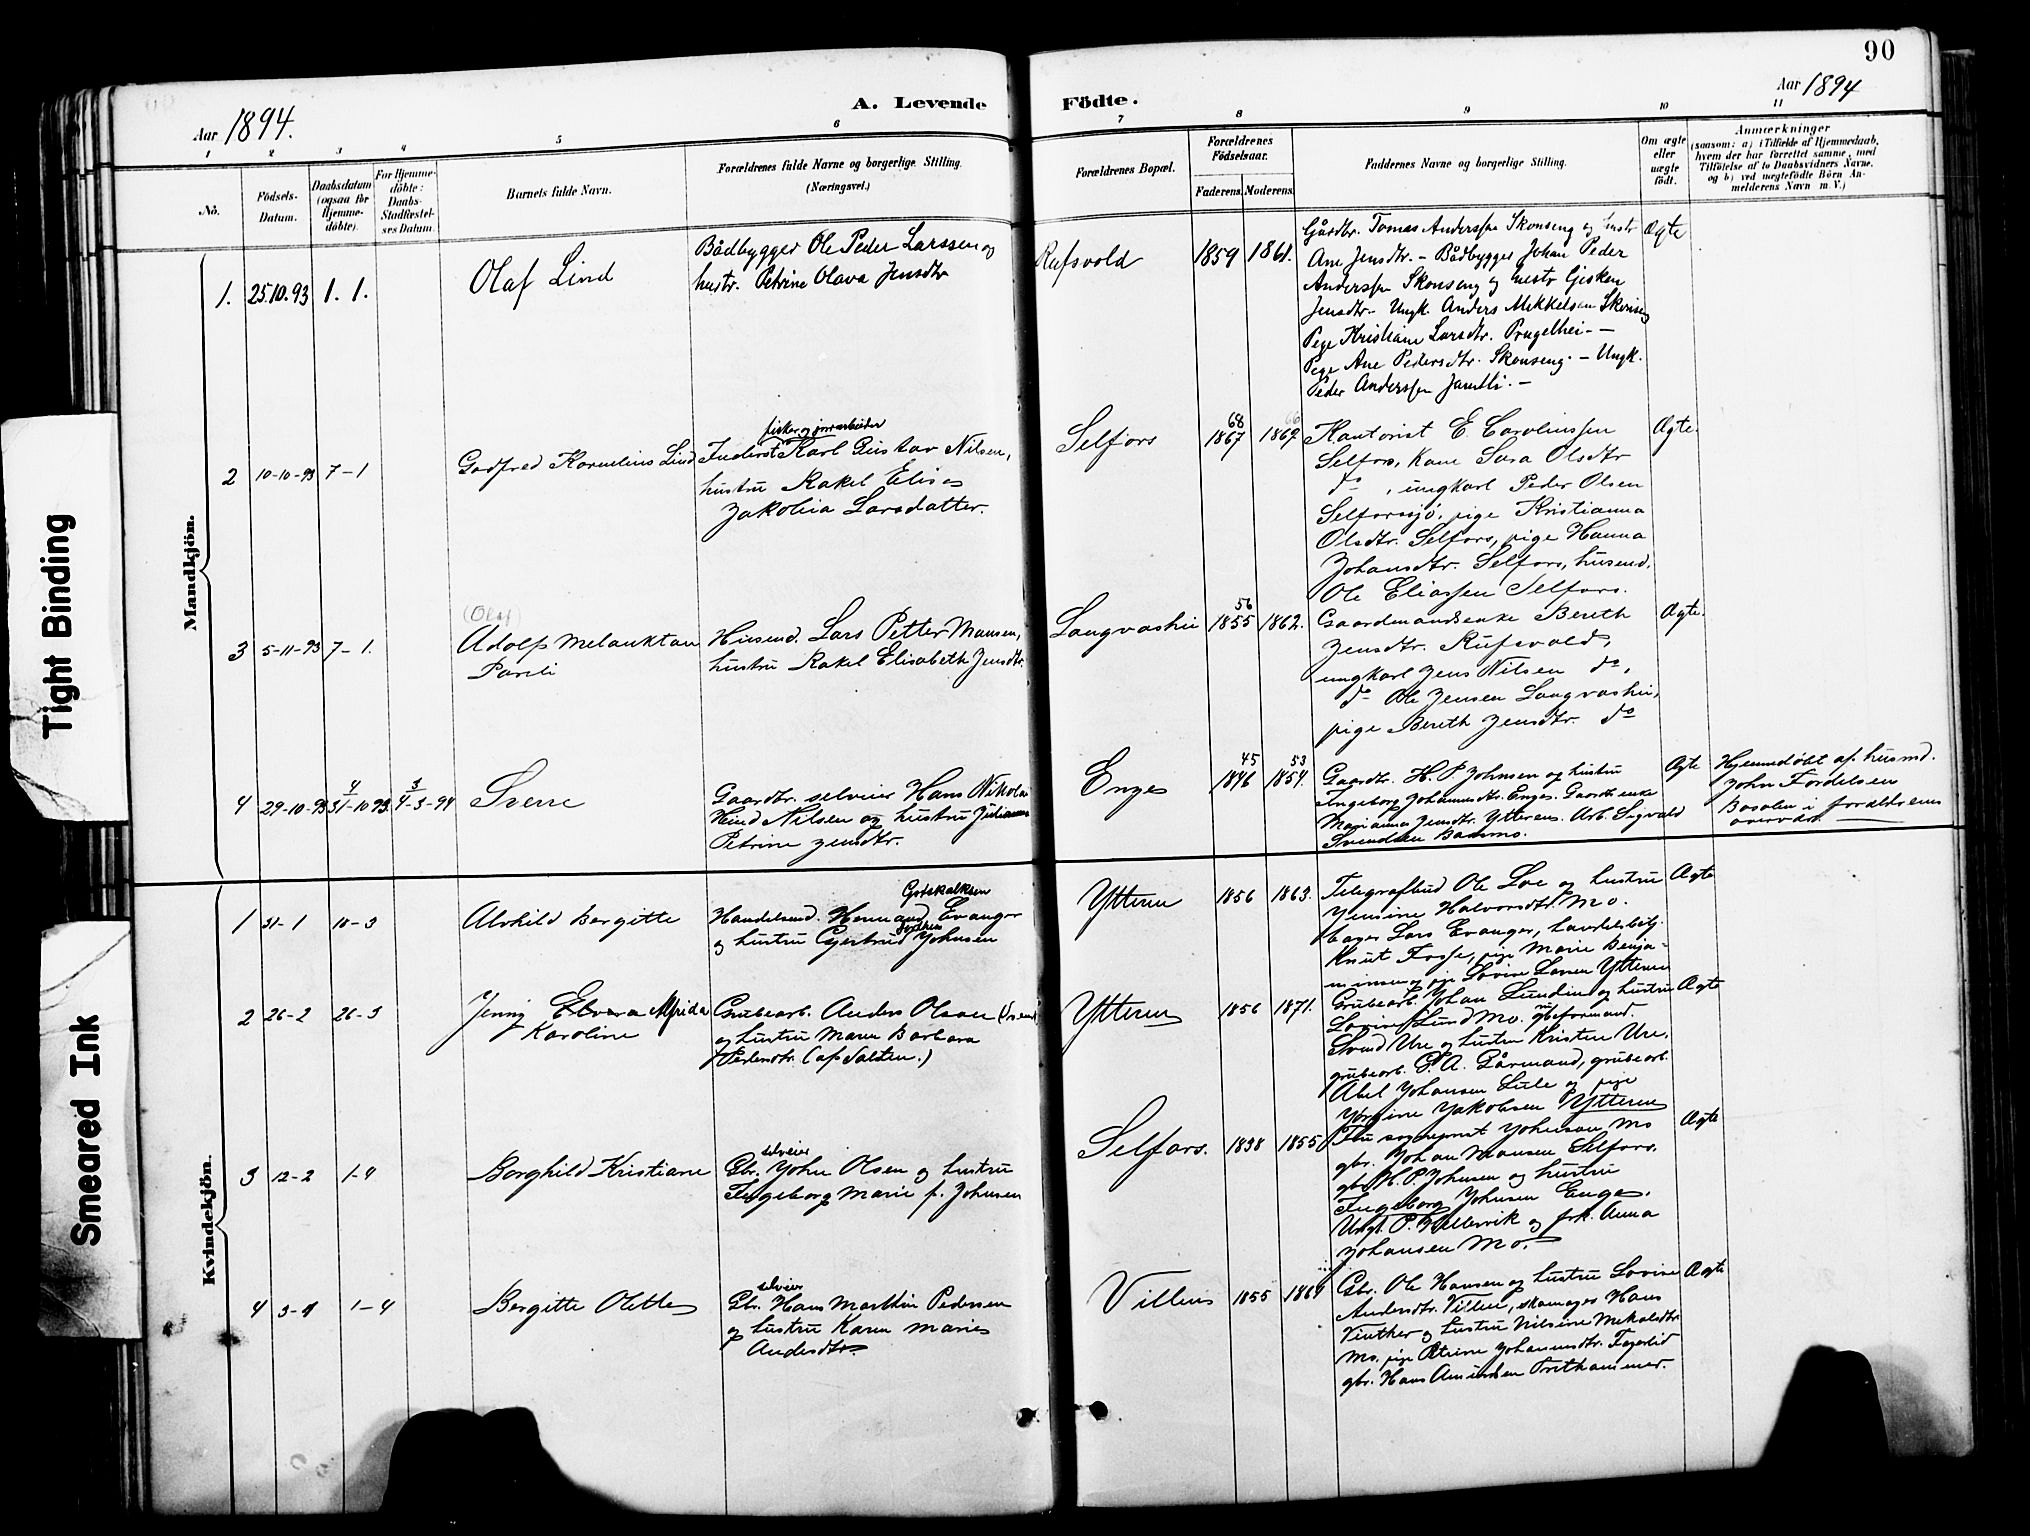 90
Aar 1894.
A. Levende Födte.
Aar 1894
1 2 3 4 5 6 7 8 9 10 11
Nö.
Födsels-
Datum.
Daabsdatum
(ogsaa for
Hjemme-
döbte).
For Hjemme-
döbte:
Daabs-
Stadfæstel-
ses Datum.
Barnets fulde Navn.
Forældrenes fulde Navne og borgerlige Stilling.
(Næringsvei.)
Forældrenes Bopæl.
Forældrenes
Födselsaar.
Faderens. Moderens.
Faddernes Navne og borgerlige Stilling.
Om ægte
eller
uægte
födt.
Anmærkninger
(saasom: a) i Tilfælde af Hjemmedaab,
hvem der har forrettet samme, med
Tilföielse af to Daabsvidners Navne,
og b) ved uegtefödte Börn An-
melderens Navn m. V.)
Mandkjön.
1. 25.10.93 1. 1.
Olaf Lind
Bådbygger Ole Peder Larssen og
hustr. Petrine Olava Jensdtr
Rufsvold
1859 1861.
Gårdbr. Tomas Anderssen Skonseng og hustr
Ane Jensdtr. – Bådbygger Johan Peder
Anderssen Skonseng og hustr Gjisken
Jensdtr– Ungk. Anders Mikkelsen Skonseng
Pige Kristiane Larsdtr.
Pige Ane Pedersdtr. Skonseng. – Ungk.
Peder Anderssen
Ægte
2 10-10-93 7-1
Godfred Kornelius Lind
fisker og jordarbeider
Inderst Karl Gustav Nilsen,
hustru Rakel Elise
Jakobia Larsdatter.
Selfors
68 66
1867 1869.
Kantorist E. Carolinssen
Selfors, Kone Sara Olsdtr
do, ungkarl Peder Olsen
Selforssjö, pige Kristianna
Olsdtr. Selfors, pige Hanna
Johansdtr. Selfors, husmd.
Ole Eliassen Selfors.
Ægte.
3 5-11-93 7-1.
(Olaf)
Adolf Melanktan
Pareli
Husmd. Lars Petter Monsen,
hustru Rakel Elisabeth Jensdtr.
Langvashei
56
1855 1862.
Gaardmandsenke Bereth
Jensdtr. Rufsvold,
ungkarl Jens Nilsen do,
do Ole Jensen Langvashei,
pige Bereth Jensdtr. do
Ægte.
4 29-10-93 4/31-10 93 3/4-3-94
Sverre
Gaardbr. selveier Hans Nikolai
Hind Nilsen og hustru Julianna
Petrine Jensdtr.
Enge
45 53
1846 1854.
Gaardbr. H. P. Johnsen og hustru
Ingeborg Johannesdtr. Enge. Gaardbr. enke
Marianna Jensdtr. Ytteren. Arb. Sigvald
Svendsen Basmo.
Ægte
Hjemmedöbt af husmd.
John Fordelsen
Basolen i forældrenes
overvær
Kvindekjön.
1 31-1 10-3
Alvhild Bergitte
Gotskalksen
Handelsmd. Hermand Evanger
og hustru Gjertrud Johnsen
Ytteren
1856 1863.
Telegrafbud Ole Loe og hustru
Jensine Halvorsdtr. Mo.
bager Lars Evanger, handelsbetj.
Knut Fosse, pige Marie Benja-
minsen og pige Lovise Lovsen Ytteren
Ægte
2 26-2 26-3
Jenny Elvera Alfrida
Karoline
Grubearb. Anders Olsen
og hustru Maren Barbara
Pedersdtr. (af Salten.)
Ytteren
1856 1871.
Grubearb. Johan Lundin og hustru
Lovise Lund Mo. grubeformand.
Svend Ure og hustru Kristine Ure,
grubearb. P. A. Gårmand, grubearb.
Abel Johansen Lule og pige
Jörgine Jakobsen Ytteren
Ægte
3 12-2 1-4
Borghild Kristiane
selveier
Gbr. John Olsen og hustru
Ingeborg Marie f. Johnsen
Selfors.
1838 1855
Fru sogneprest Johnson Mo
gbr. Johan Monsen Selfors.
gbr. H. P. Johnsen og hustru
Ingeborg Johnsen Enge.
Ungk. P. Hellesvik og frk. Anna
Johansen Mo.
Ægte
4 3-4 1-4
Bergitte Olette
selveier
Gbr. Hans Martin Pedersen
og hustru Karen Marie
Andersdtr.
Villen
1855 1864
Gbr. Ole Hansen og hustru Lovise
Andersdtr. Villen, skomager Hans
Vinther og hustru Nilsine Mikalsdtr
Mo, pige Petrine Johannesdtr. Fagerlid
gbr. Hans Amundsen Trethammer.
Ægte
Tight Binding
Smeared Ink